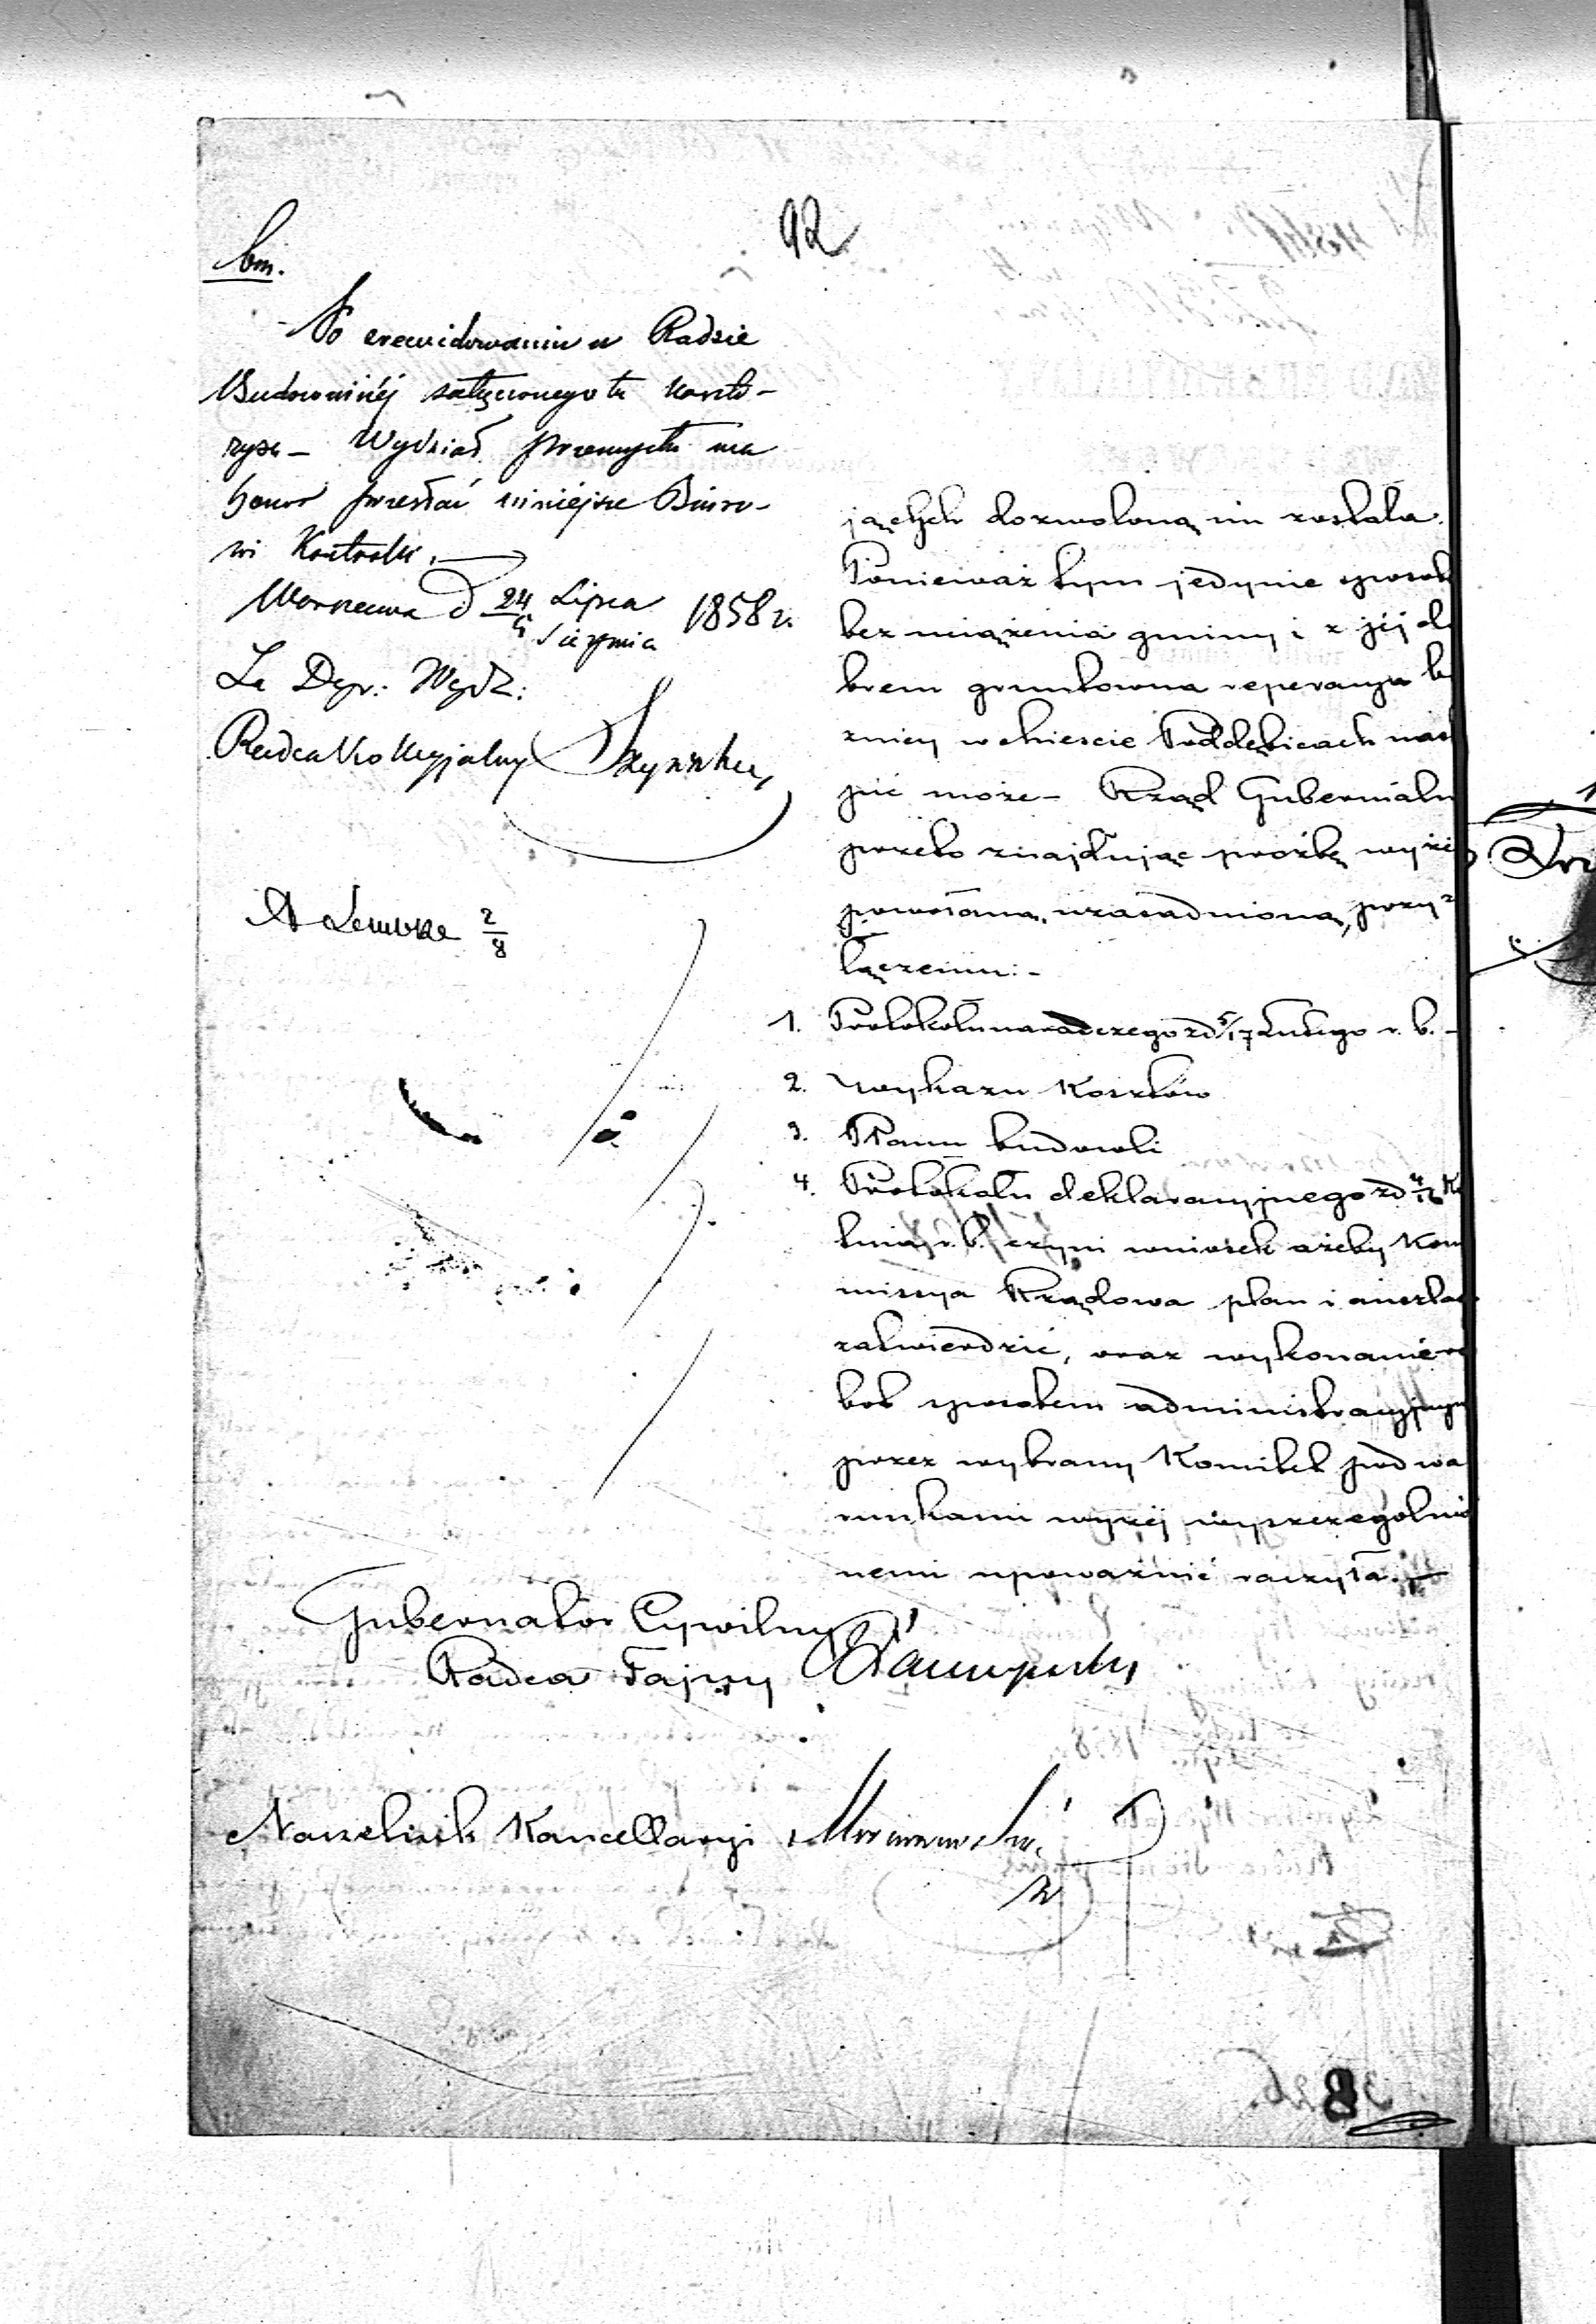 92
bm.
Po zrewidowaniu w Radzie
Budowniczéj załączonego tu koszto-
rysu – Wydział Przemysłu ma
honor przesłać niniejsze Biuro-
wi Kontroli.
Warszawa d 24 Lipca
5 Sierpnia 1858 r.
Za Dyr: Wydz:
Radca Kollegjalny
2
8
jących dozwoloną im została.
Ponieważ tym jedynie sposob
bez uciążenia gminy i z jéj do
brem gruntowna reperacya bo
żnicy w mieście Poddębicach nast
pić może – Rząd Gubernialn
przeto znajdując prośbę wyże
powołaną, uzasadnioną, przy
łączeniu: –
1. Protokołu naradczego z d 5/17 Lutego r. b. –
2. Wykazu Kosztów
3. Planu budowli
4. Protokołu deklaracyjnego z d 4/16 Kw
tnia r. b. czyni wniosek ażeby Kom
missya Rządowa plan i anszlag
zatwierdzić, oraz wykonanie ro
bot sposobem administracyjnym
przez wybrany Komitet pod wa
runkami wyżéj wyszczególnio
nemi upoważnić raczyła. –
Gubernator Cywilny
Radca Tajny
Naczelnik Kancellaryi
8